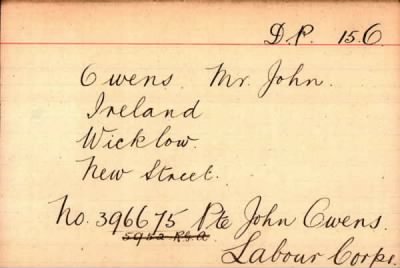 D.P. 15.O.
Owens. Mr. John.
Ireland
Wicklow.
New Street.
No. 396675 Pte John Owens.
5952 R.G.A.
Labour Corps.